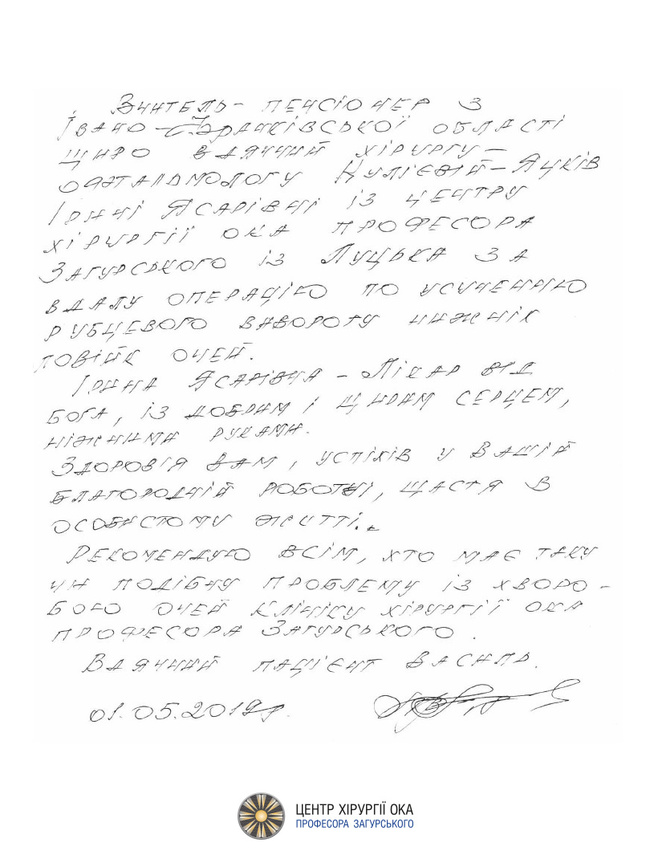 Вчитель-пенсіонер з
Івано-Франківської області
щиро вдячний хірургу-
офтальмологу Кулієвій-Яцків
Ірині Ясарівні із центру
хірургії ока професора
Загурського із Луцька за
вдалу операцію по усуненню
рубцевого завороту нижніх
повік очей.
Ірина Ясарівна - Лікар від
Бога, із добрим і щирим серцем,
ніжними руками.
Здоровʼя Вам, успіхів у Вашій
благородній роботі, щастя в
особистому житті.
Рекомендую всім, хто має таку
чи подібну проблему із хворо-
бою очей клініку хірургії ока
професора Загурського.
Вдячний пацієнт Василь.
01.05.2019р.
ЦЕНТР ХІРУРГІЇ ОКА
ПРОФЕСОРА ЗАГУРСЬКОГО